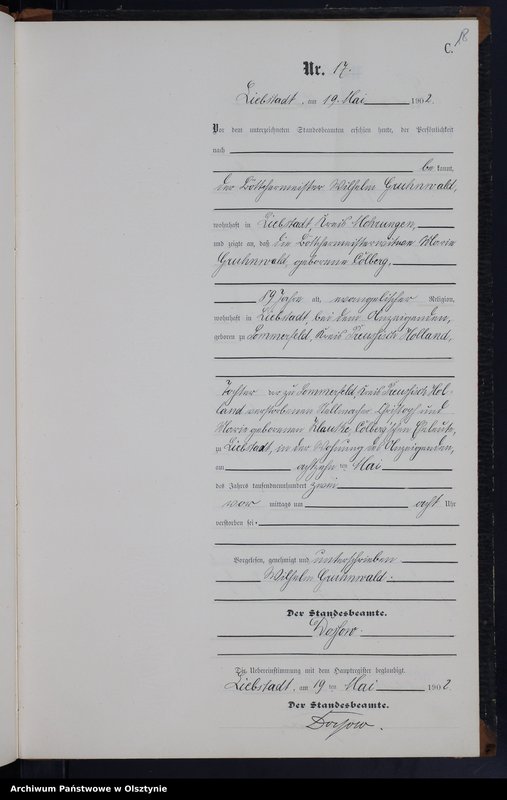 C.
18
Nr. 17.
Liebstadt, am 19. Mai 1902.
Vor dem unterzeichneten Standesbeamten erschien heute, der Persönlichkeit
nach
be kannt,
der Böttchermeister Wilhelm Gruhnwald,
wohnhaft in Liebstadt, Kreis Mohrungen,
und zeigte an, daß die Böttchermeisterwitwe Marie
Gruhnwald, geborene Cölberg,
89 Jahre alt, evangelischer Religion,
wohnhaft in Liebstadt bei dem Anzeigenden,
geboren zu Sommerfeld, Kreis Preußisch Holland,
Tochter der zu Sommerfeld, Kreis Preußisch Hol-
land verstorbenen Stellmacher Christoph und
Marie geborenen Cölberg'schen Eheleute,
zu Liebstadt, in der Wohnung des Anzeigenden,
am achtzehn ten Mai
des Jahres tausendneunhundert zwei
vor mittags um acht Uhr
verstorben sei.
Vorgelesen, genehmigt und unterschrieben
Wilhelm Gruhnwald.
Der Standesbeamte.
Die Uebereinstimmung mit dem Hauptregister beglaubigt.
Liebstadt, am 19 ten Mai 1902.
Der Standesbeamte.
Archiwum Państwowe w Olsztynie